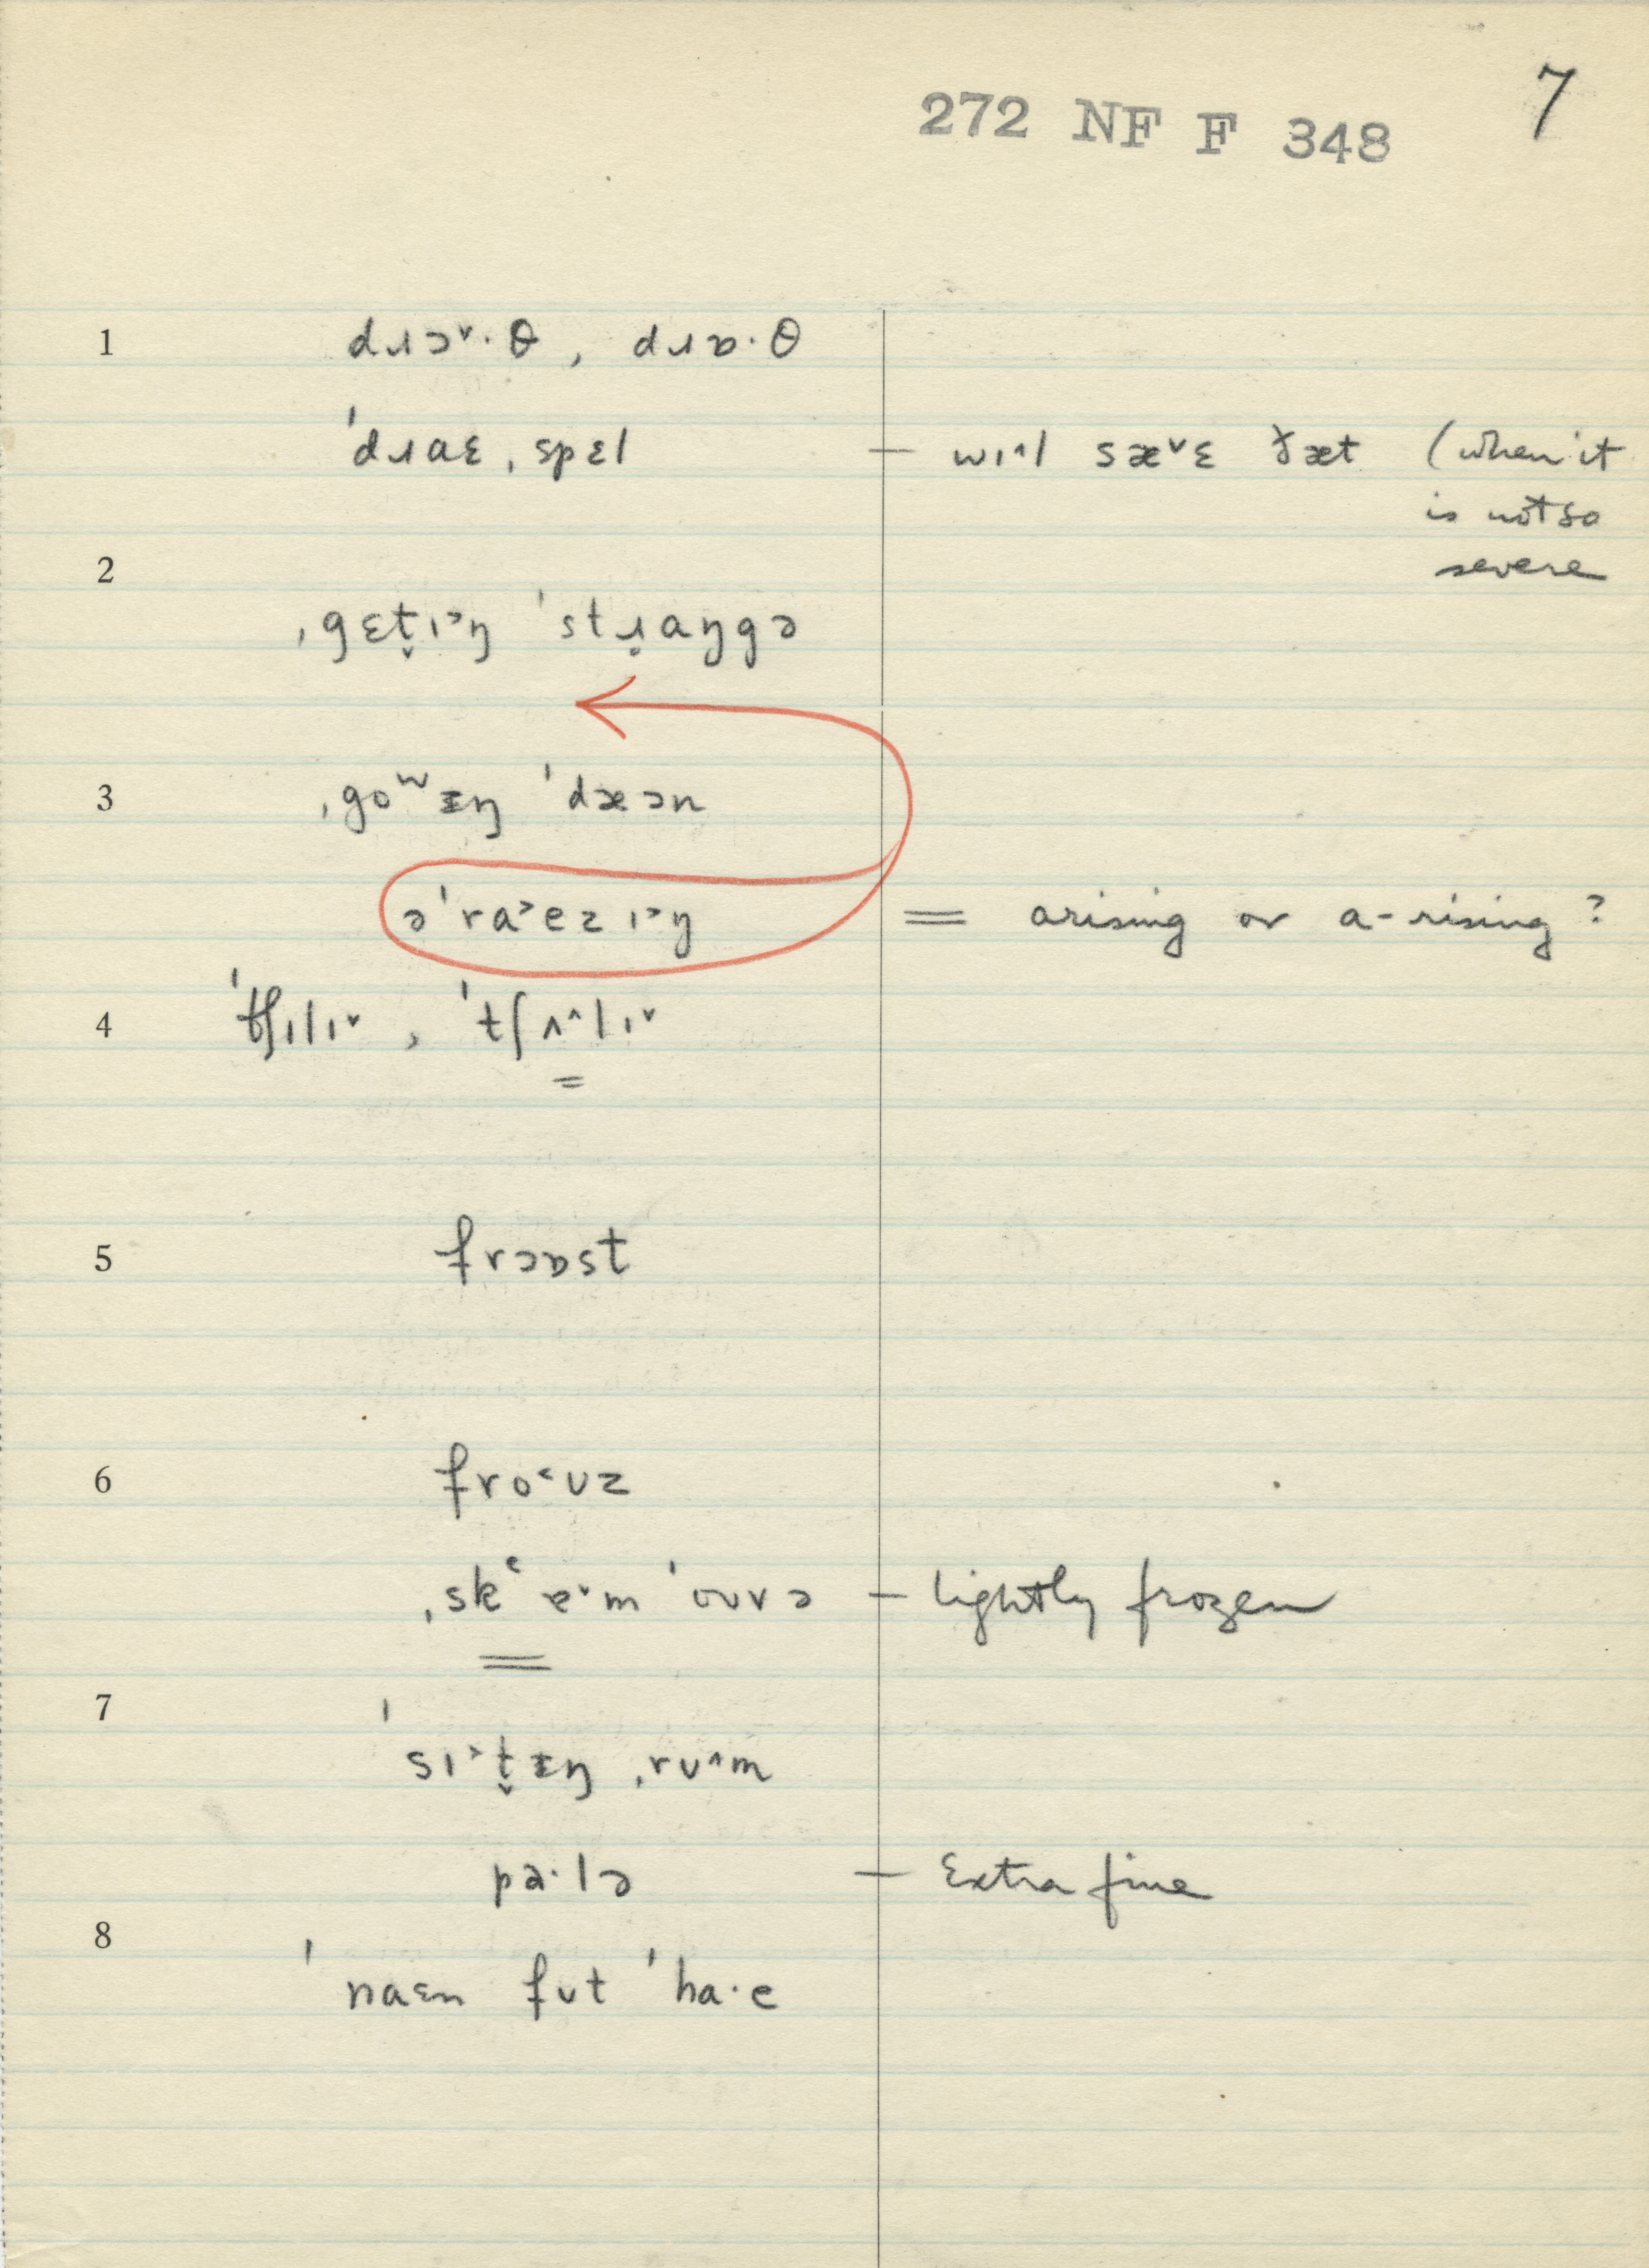 7
272 NF F 348
1 dɹɔ˅·θ , dɹɒ·θ
ˈdɹaɛ ˌspɛl — wɪ^l sæ˅ɛ ðæt (when it
is not so
severe
2
ˌgɛt̬ɪ˃ŋ ˈstɹ̣aŋgə
3 ˌgoʷᵻŋ ˈdæən
əˈra˃ezɪ˃ŋ = arising or a-rising?
4 ˈtʃɪlɪ˅ , ˈtʃʌ^lɪ˅
5 frɔɒst
6 fro˂ʊz
ˌskʿɐ˅m ˈoʊvə — lightly frozen
7
ˈsɪ˃t̬ᵻŋ ˌrʊ^m
pa·lə — Extra fine
8
ˈnaɛn fʊt ˈha·e